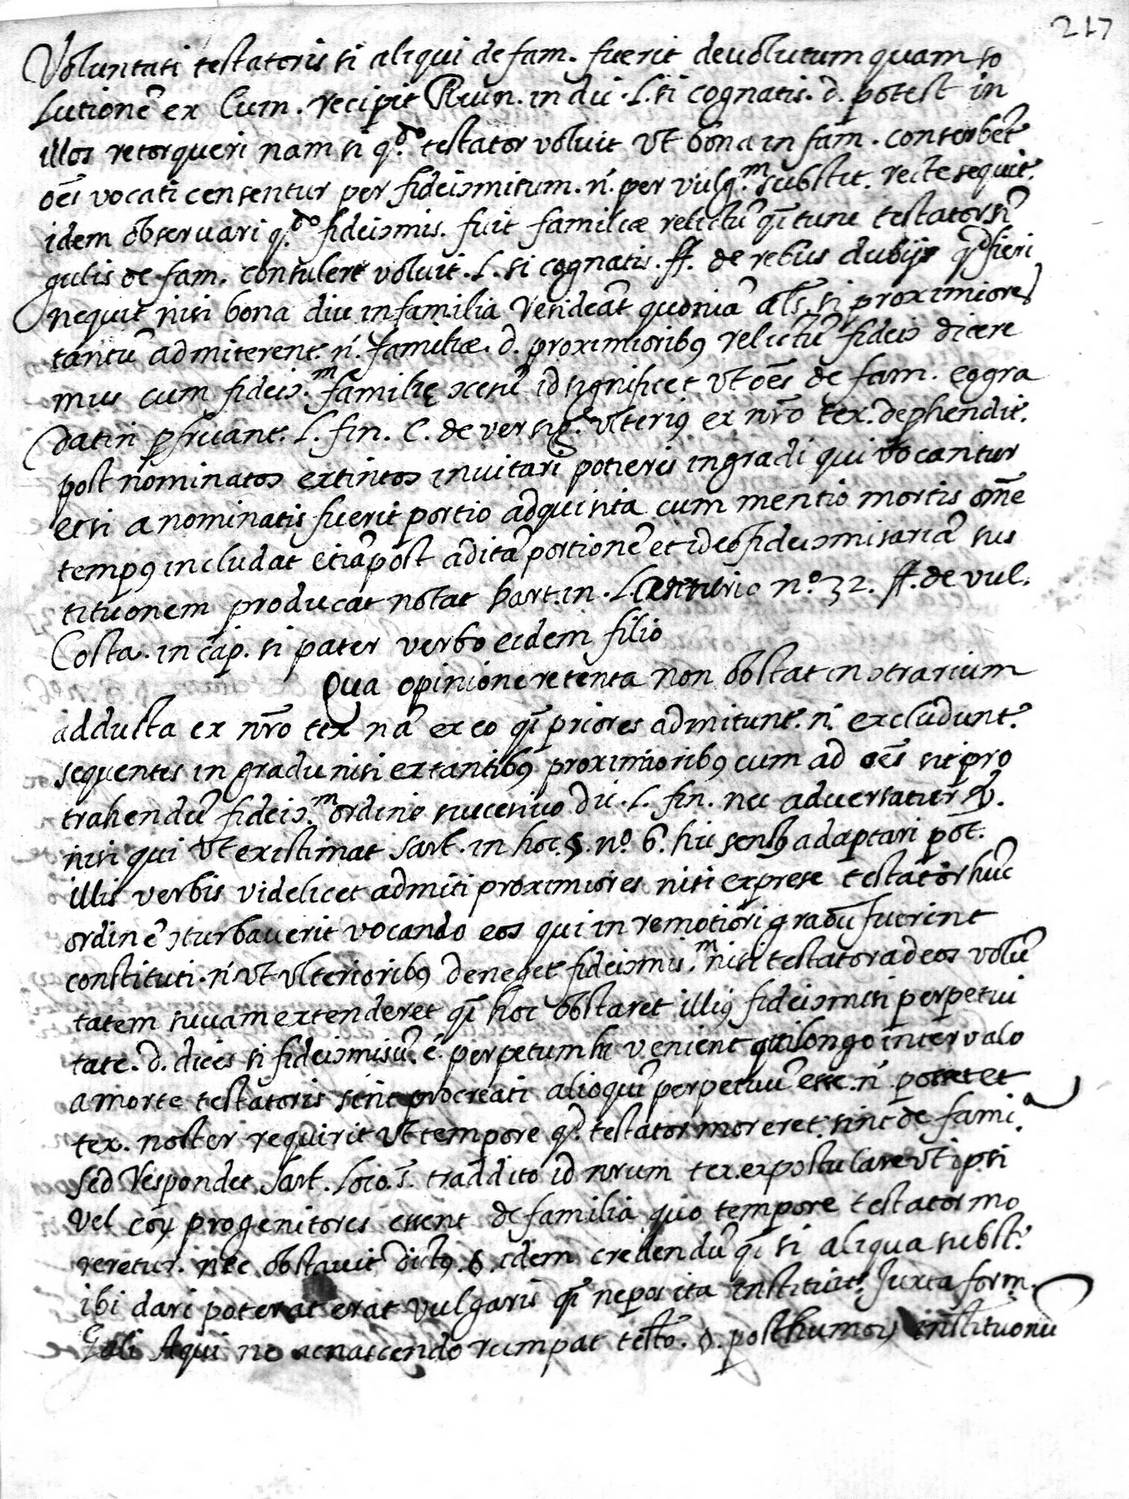 217
Voluntati testatoris si aliqui de fam. fuerit devolutum quam so
lutionē ex Cum. recipit Ruin. in dic. L. si cognatis. d. potest in
illos retorqueri nam si q.do testator voluit ut bona in fam. conserbet͂
oēs vocati censentur per fideicomitum. n̄. per vulg.m substit. recte sequit͂.
idem observari q.do fideicomis. fuit familiæ relictū q̄ tunc testator sī
gulis de fam. consulere voluit. L. si cognatis. ff. de rebus dubijs q̄ fieri
nequit nisi bona diu in familia resideāt quoniā als̄ si proximiores
tantū admiterent. n̄. familiæ. d. proximioribq relictū fideico dicere
mus cum fideico.m familię id significet ut oēs de fam. eg gra
datin pfruant. L. fin. C. de ver sig. ulteriq ex nr̄o tex. dephendit͂.
post nominatos extintos invitari potieris in gradi qui vocantur
et si a nominatis fuerit portio adquisita cum mentio mortis om̄e
tempq includat etiā post aditā portionē et ideo fideicomisariā sus
titutionem producat notat bart. in. L. Centurio nº 32. ff. de vul.
Costa. in cap. si pater verbo eidem filio
Qua opinione retenta non obstat in contrarium
adducta ex nr̄o tex nā ex eo q̄ priores admitunt. n̄. excludunt.
sequentes in gradu nisi extantibq proximioribq cum ad oēs sit pro
trahendū fideico.m ordine sucesivo dic. L. fin. nec adversatur
nisi qui ut existimat Sart. in hoc. §. nº 6. hic sensq adaptari pōt.
illis verbis videlicet admiti proximiores nisi exprese testator hūc
ordinē conturbaverit vocando eos qui in remotiori gradu fuerint
constituti. n̄ ut ulterioribq deneget fideicomis.m nisi testator ad eos volū
tatem suuam extenderet q̄ hoc obstaret illiq fideicomisi perpetui
tate. d. dices si fideicomisū. ē. perpetum hi venient qui longo intervalo
a morte testatoris sint procreati alioquī perpetuū esse. n̄. posset et
tex. noster requirit ut tempore q. testator moreret. sint de fami.a
Sed respondet Sart. loco. s̄. traddito id nr̄um tex. expostulare ut ipsi
vel eoȝ progenitores essent de familia quo tempore testator mo
reretur. nec obstavit dictq. §. idem credendū q̄ si aliqua subst.
ibi dari poterat erat vulgaris q̄ nepos ita instituit. Juxta form.
Gali Aqui ne acnascendo rumpat testo. §. posthumoȝ institutionū